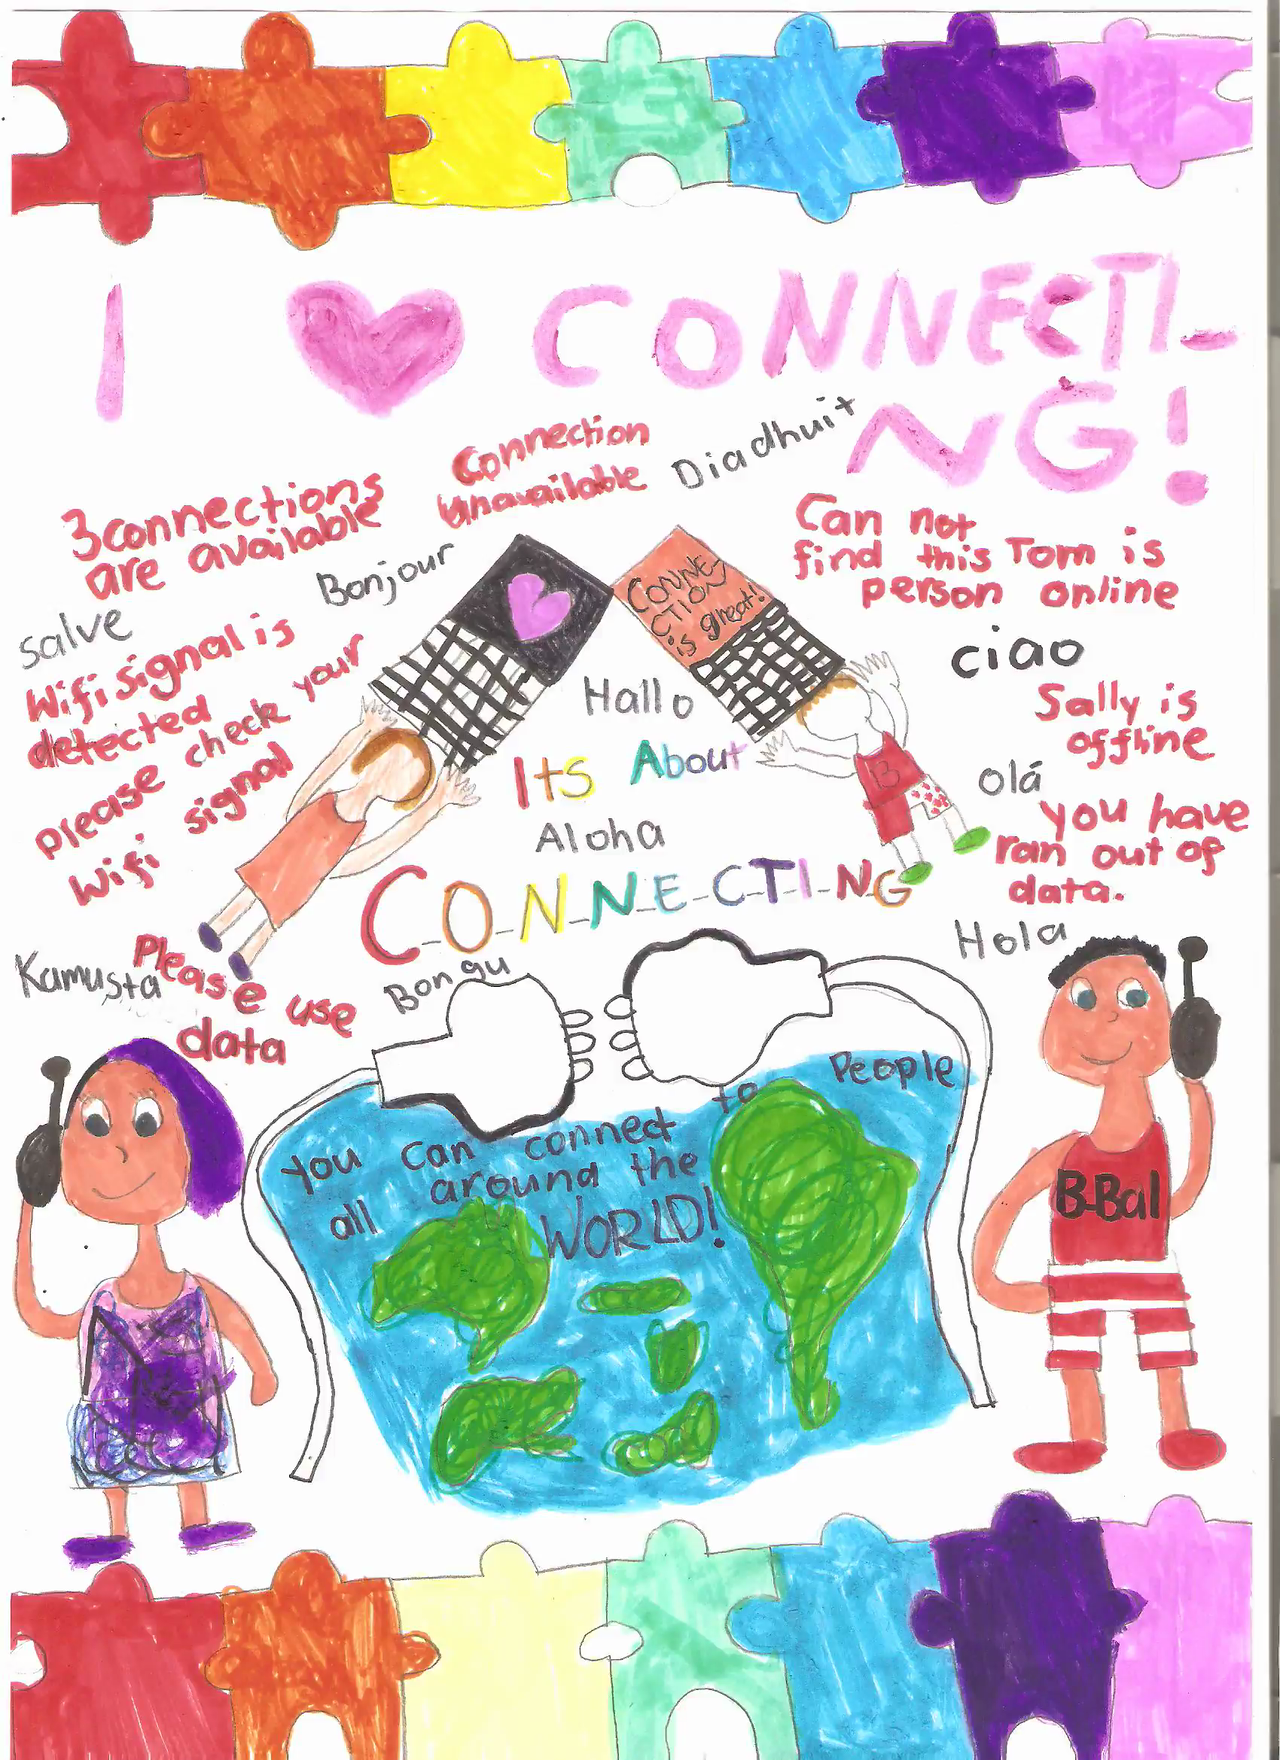 I ♥ CONNECTI-
NG!
Connection
unavailable
Diadhuit
3 connections
are available
Bonjour
Can not
find this
person
Tom is
online
salve
Wifi signal is
detected
please check your
Wifi signal
CONNE-
CTION
is great!
ciao
Hallo
Sally is
offline
Its About
B
Olá
Aloha
you have
ran out of
data.
C-O-N-N-E-C-T-I-N-G
Hola
Kamusta
Please use
data
Bongu
You can connect to People
all around the
WORLD!
B-Bal